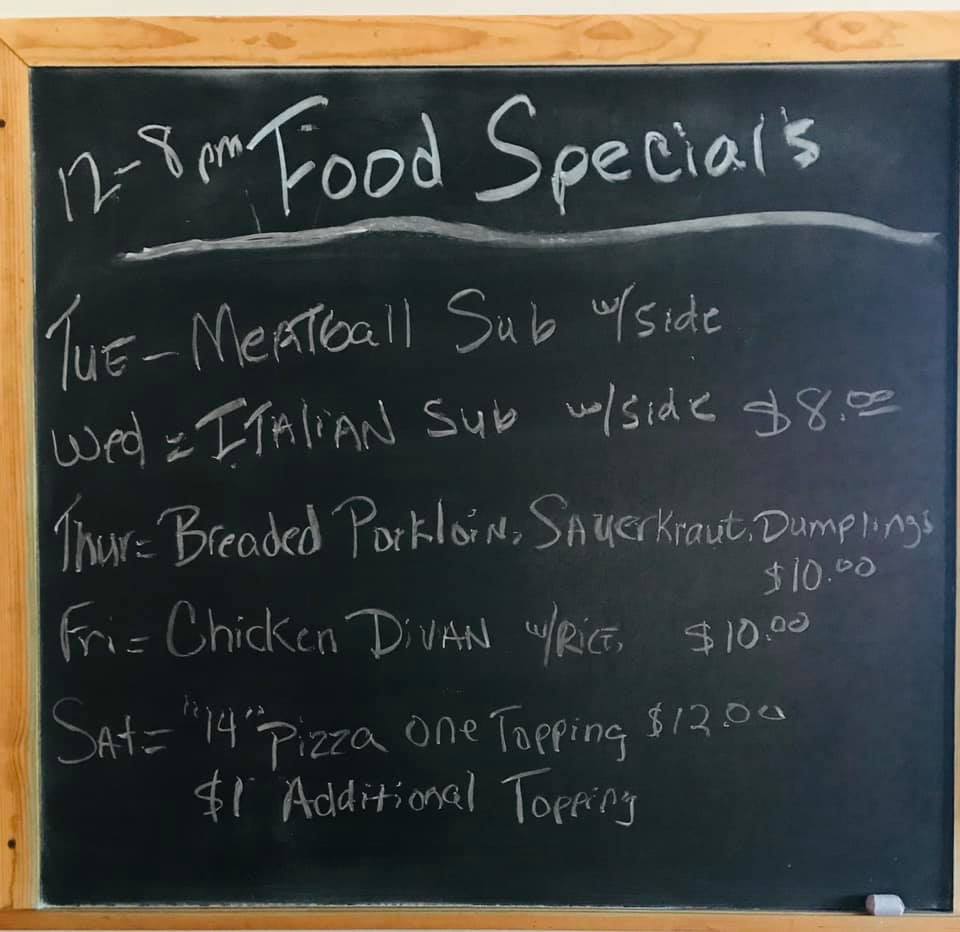 12-8pm Food Special's
TUE - MEATball Sub w/side
Wed = ITALiAN Sub w/side $8.00
Thur = Breaded Porkloin, SAuerkraut, Dumplings
$10.00
Fri = Chicken DiVAN w/RiCE, $10.00
SAt = "14" Pizza one Topping $12.00
$1 Additional Topping